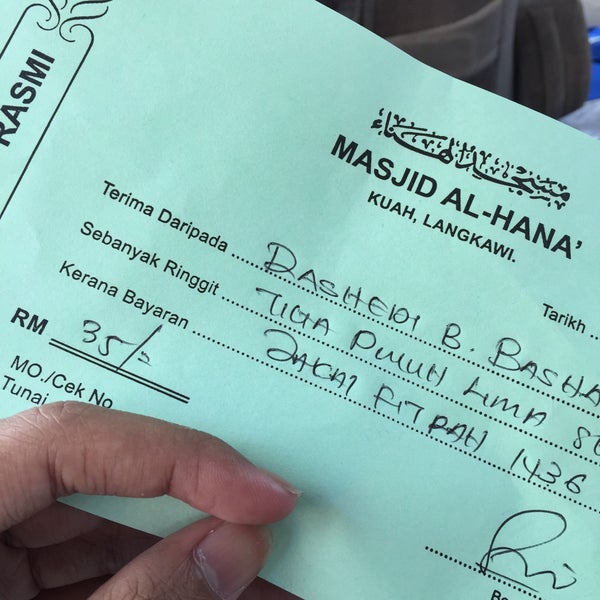 RASMI
مسجد الهناء
MASJID AL-HANA'
KUAH, LANGKAWI.
Tarikh
Terima Daripada DASHEDI B. BASHA
Sebanyak Ringgit TIGA PULUH LIMA
Kerana Bayaran ZAKAT FITRAH 1436
RM 35/=
MO./Cek No
Tunai